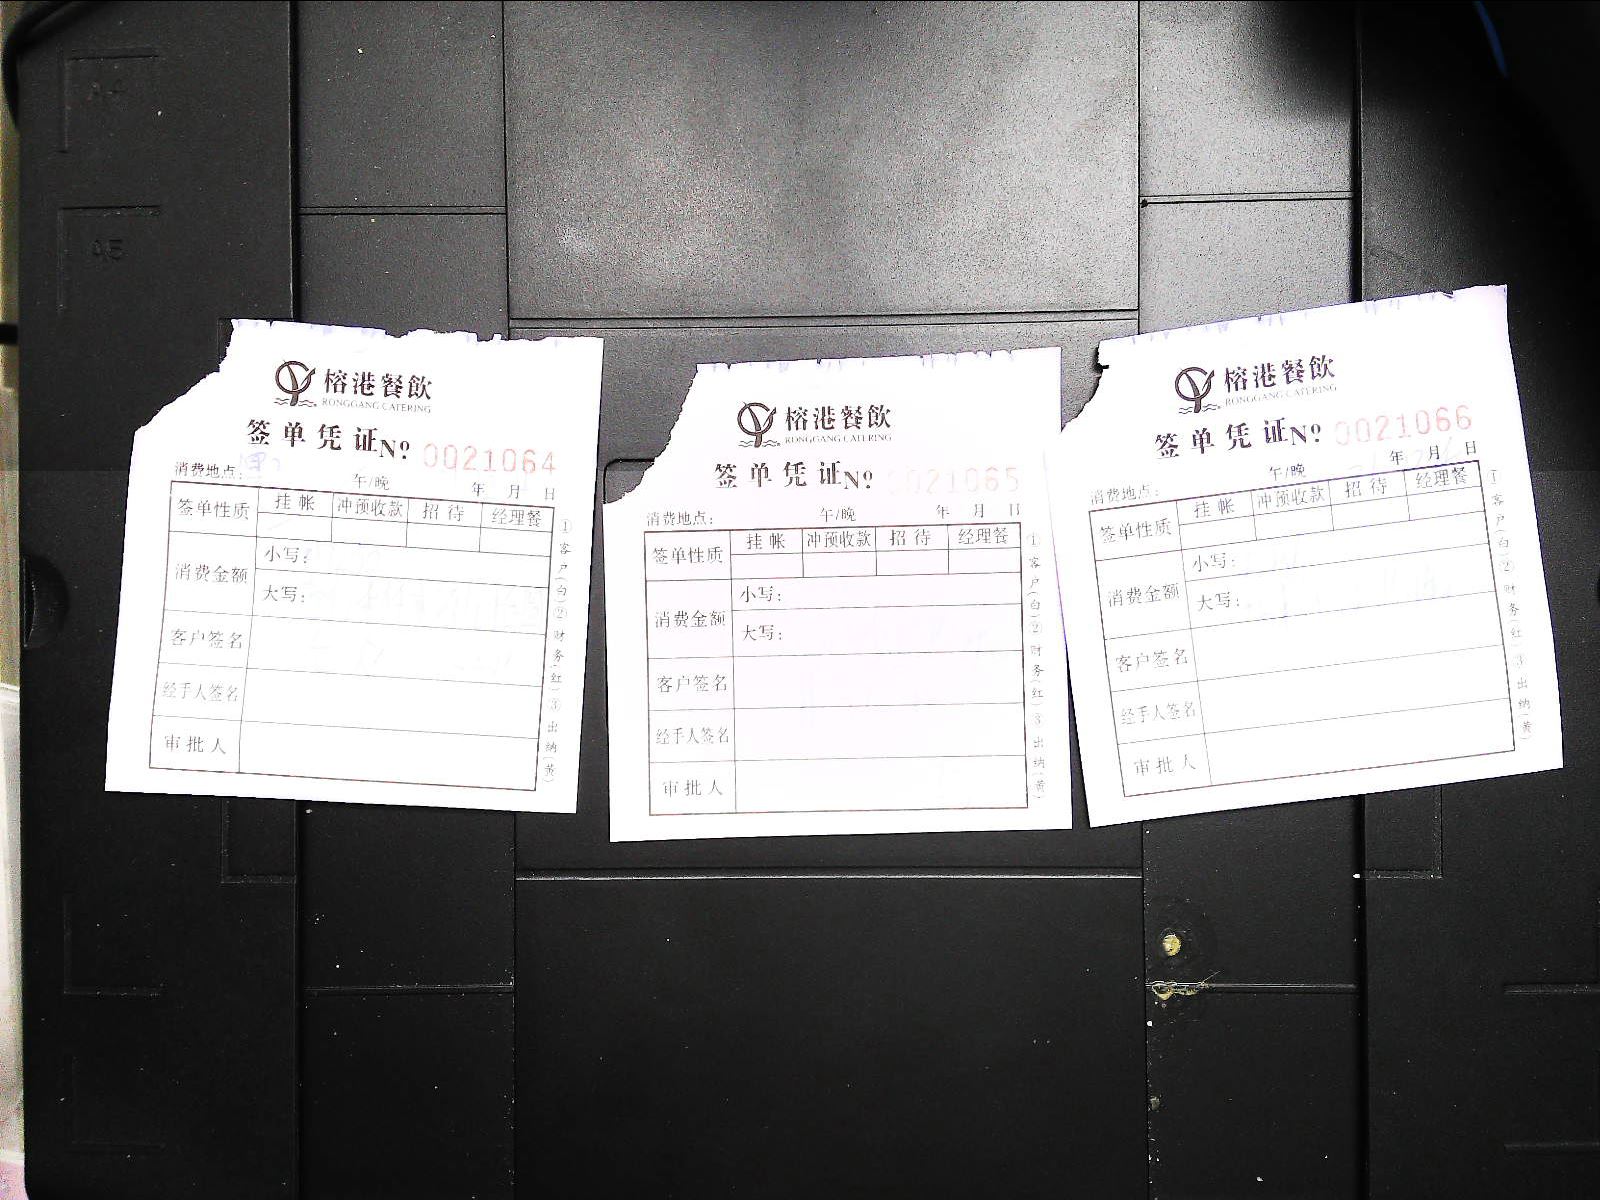 A4
A5
榕港餐飲
RONGGANG CATERING
签单凭证 Nº 0021064
消费地点:
午/晚 年 月 日
签单性质 挂帐 冲预收款 招待 经理餐
消费金额
小写:
大写:
客户签名
经手人签名
审批人
①客户(白)②财务(红)③出纳(黄)
榕港餐飲
RONGGANG CATERING
签单凭证 Nº 0021065
消费地点: 午/晚 年 月 日
签单性质 挂帐 冲预收款 招待 经理餐
消费金额
小写:
大写:
客户签名
经手人签名
审批人
①客户(白)②财务(红)③出纳(黄)
榕港餐飲
RONGGANG CATERING
签单凭证 Nº 0021066
消费地点: 午/晚 年 月 日
签单性质 挂帐 冲预收款 招待 经理餐
消费金额
小写:
大写:
客户签名
经手人签名
审批人
①客户(白)②财务(红)③出纳(黄)